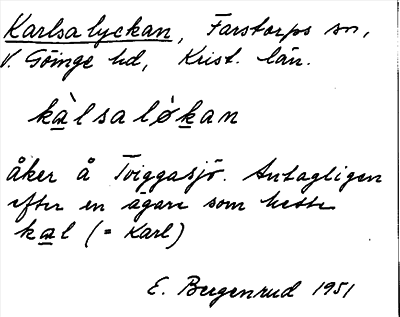 Karlsalyckan, Farstorps sn,
V. Göinge hd, Krist. län.
kàlsaløkan
åker å Tviggasjö. Antagligen
efter en ägare som hette
kal (= Karl)
E. Bergenrud 1951